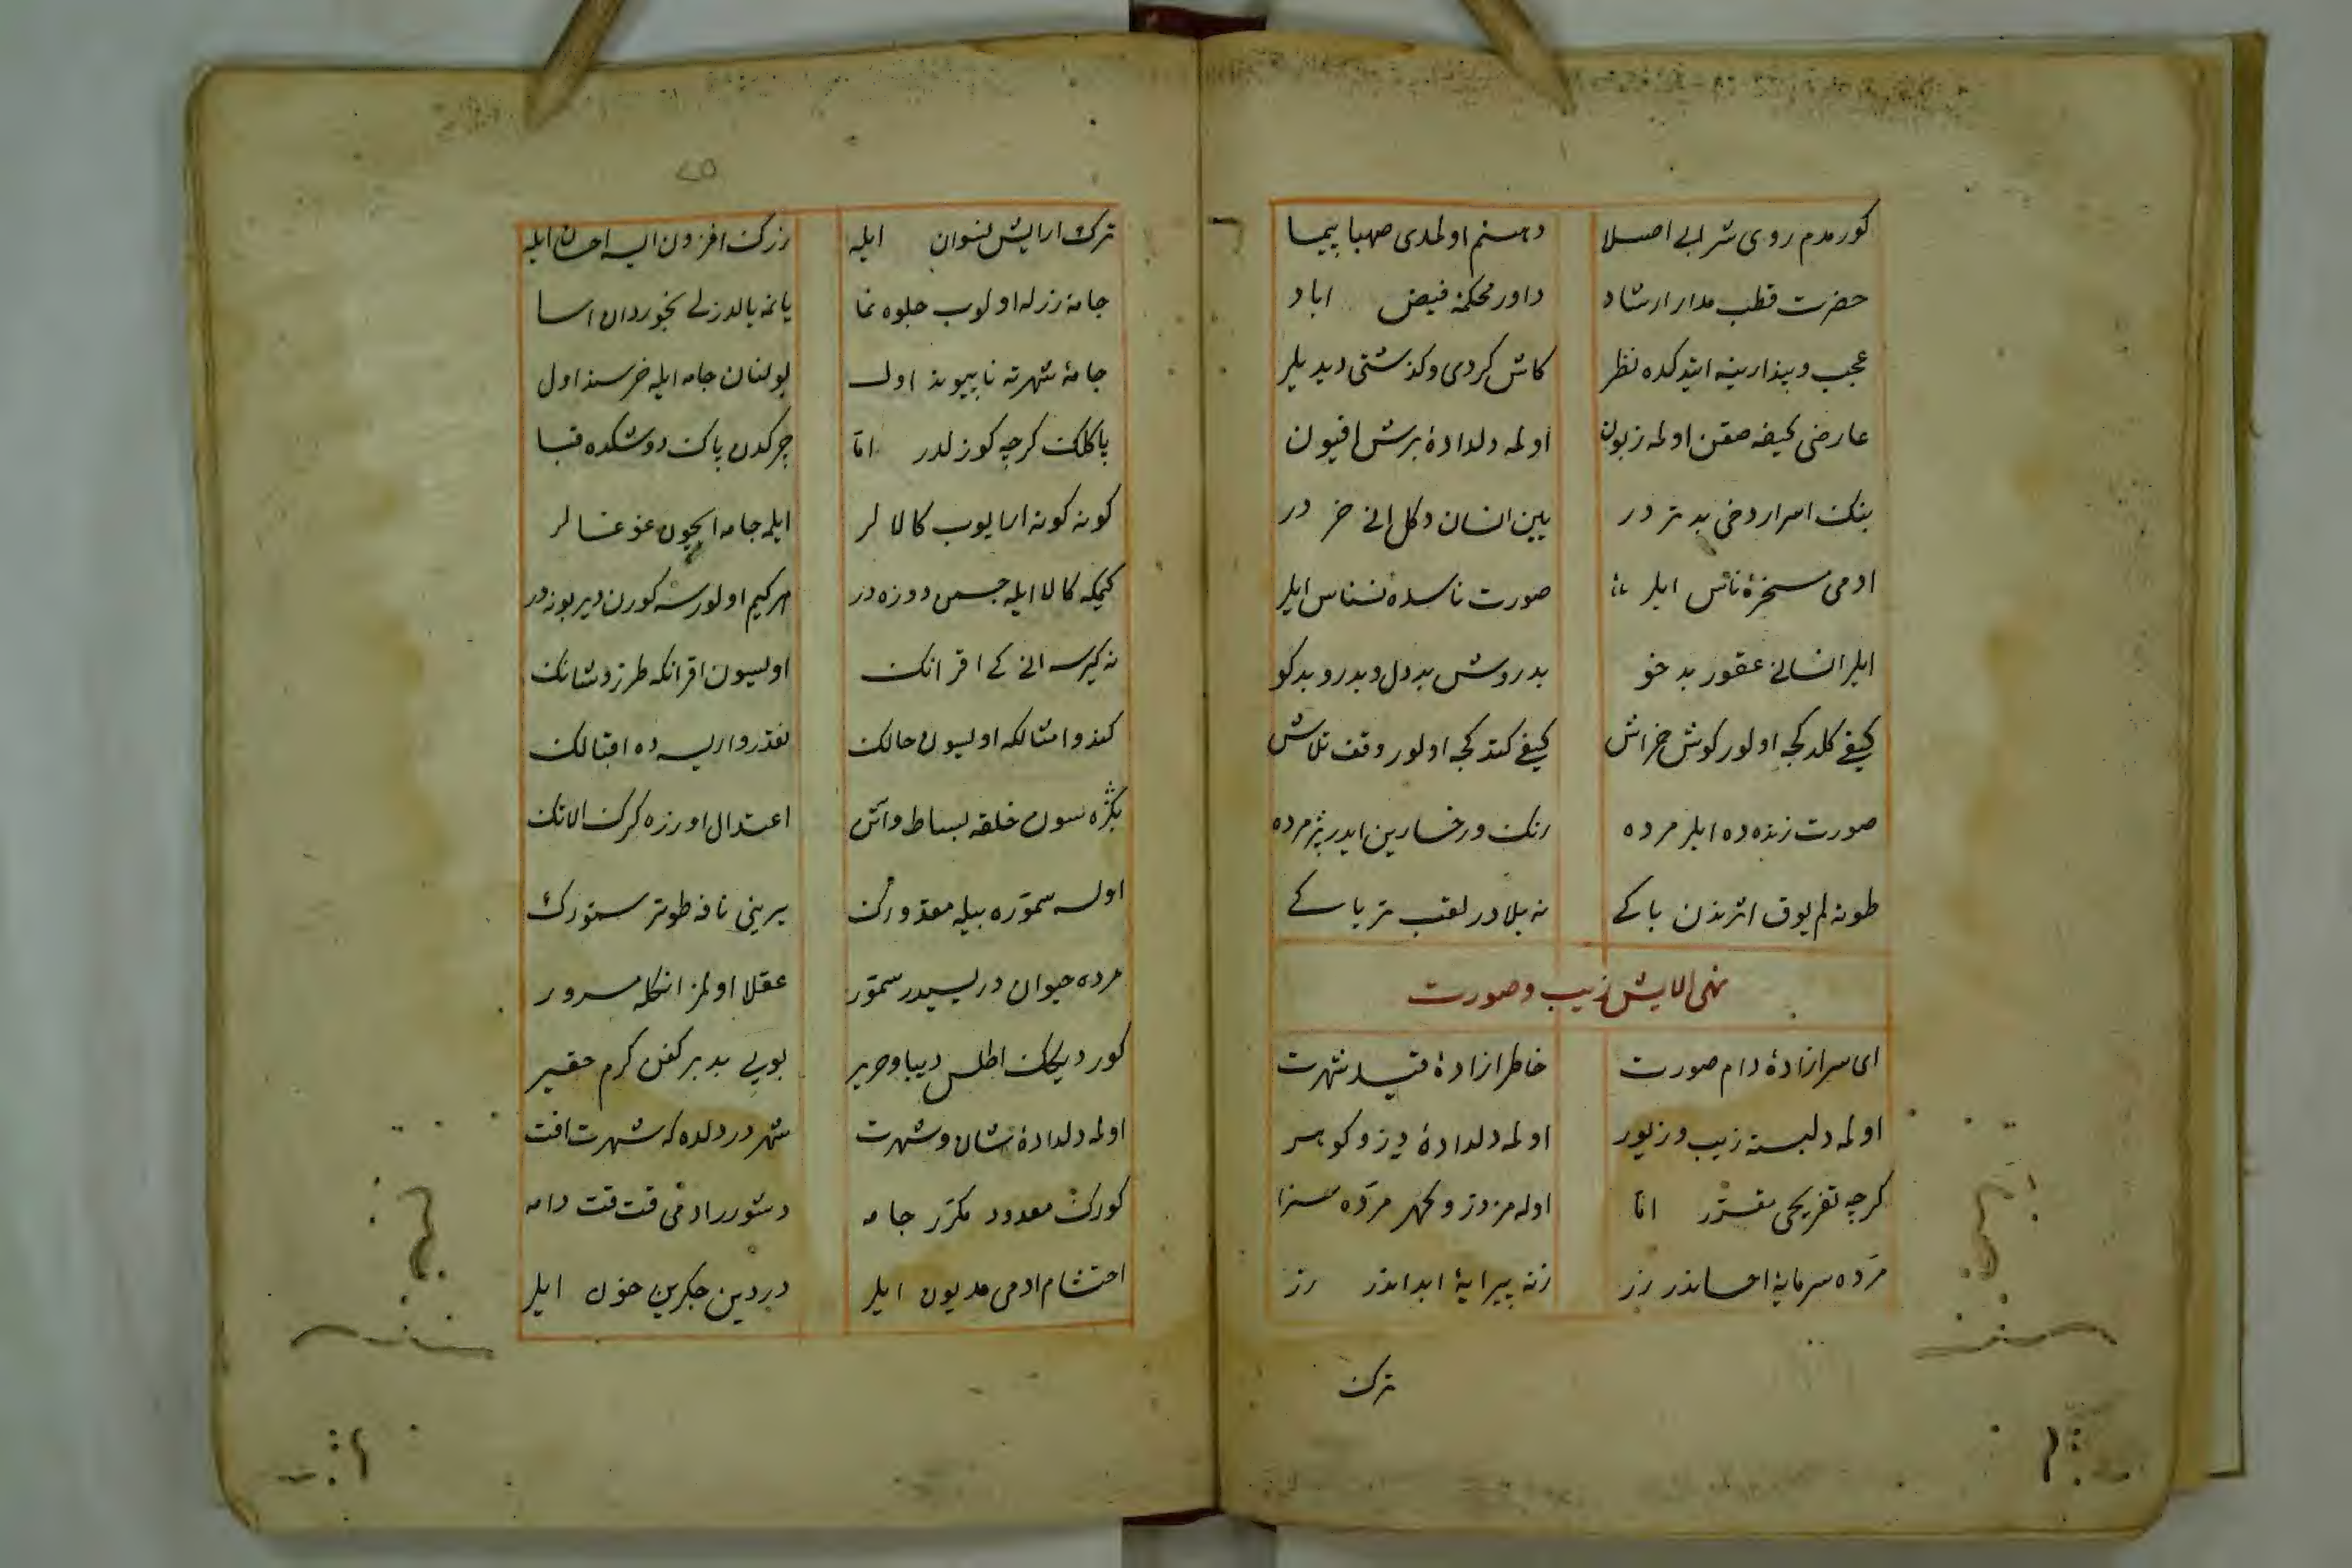 كورمدم روى شرابى اصلا دهنم اولمدى صهبا پيما
حضرت قطب مدار ارشاد داور محكمهٔ فيض اباد
عجب و پندارينه ايتدكده نظر كاش كردى وكذشتى ديديلر
عارضى كيفه صقن اولمه زبون اولمه دلدادهٔ برش افيون
بنك اسرار دخى بدتر در بين انسان دكل انى خر در
ادمى مسخرهٔ ناس ايلر صورت ناسده نسناس ايلر
ايلر انسانى عقور بدخو بدروش بددل و بدرو بدكو
كيفى كلدكجه اولور كوش خراش كيفى كتدكجه اولور وقف تلاش
صورت زنده ده ايلر مرده رنك ورخسارين ايدر پژمرده
طوته لم يوق اثرندن باكى نه بلادر لقب ترياكى
نهى الايش زيب وصورت
اى سرازادهٔ دام صورت خاطر ازادهٔ قيد شهرت
اولمه دلبستهٔ زيب وزيور اولمه دلدادهٔ در و كوهر
كرچه تفريحى مقرر اما اوله مز در و كهر مرده سزا
مرده سرمايهٔ احساندر زر زنه پيرايهٔ ابداندر زر
ترك
٢٥
ترك ارايش نسوان ايله زرك افزون ايسه احسان ايله
جامهٔ زرله اولوب جلوه نما يانمه يالدزلى بخوردان اسا
جامهٔ شهرته ناپيوند اول بولنان جامه ايله خرسند اول
پاكلك كرچه كوزلدر اما چركدن پاك دوشكده قبا
كونه كونه ارايوب كالالر ايلمه جامه ايچون غوغالر
كيمكه كالا ايله جسمن دوزه در هر كيم اولورسه كورن دير بوزدر
نه كيرسه انى كى اقرانك اولسون اقرانكه طرز و شانك
كندو امثالكه اولسون حالك نقدر وار ايسه ده اقبالك
بكزه سون خلقه بساط وانك اعتدال اوزره كرك الانك
اولسه سموره بيله مقدورك يرينى نافه طوتر سمورك
مرده حيوان دريسيدر سمور عقلا اولمز انكله مسرور
كورديكك اطلس ديبا وحرير بويى بدبر كفن كرم حقير
اولمه دلدادهٔ شان وشهرت شهر دردلده كه شهرت افت
كورك معدود مكرر جامه دشورر ادمى قت قت دامه
احتشام ادمى مديون ايلر دردين جكرين خون ايلر